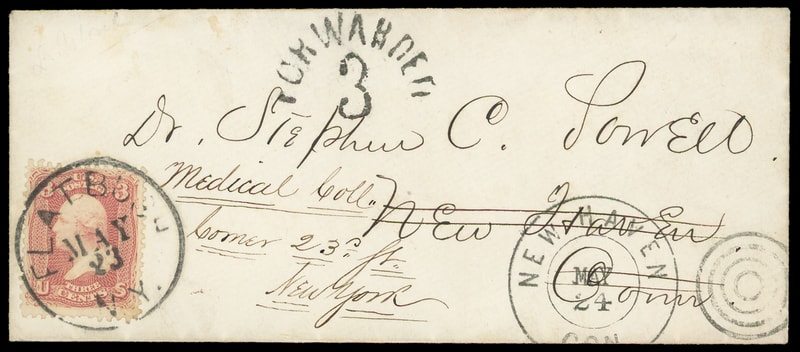 FORWARDED
3
Dr. Stephen C. Powell.
Medical Coll.,
New Haven
Conn.
Corner 23d St.
New York
U.S. POSTAGE
3 3
THREE
CENTS
U S
FLATBUSH
MAY
23
N.Y.
NEW HAVEN
MAY
24
CON.